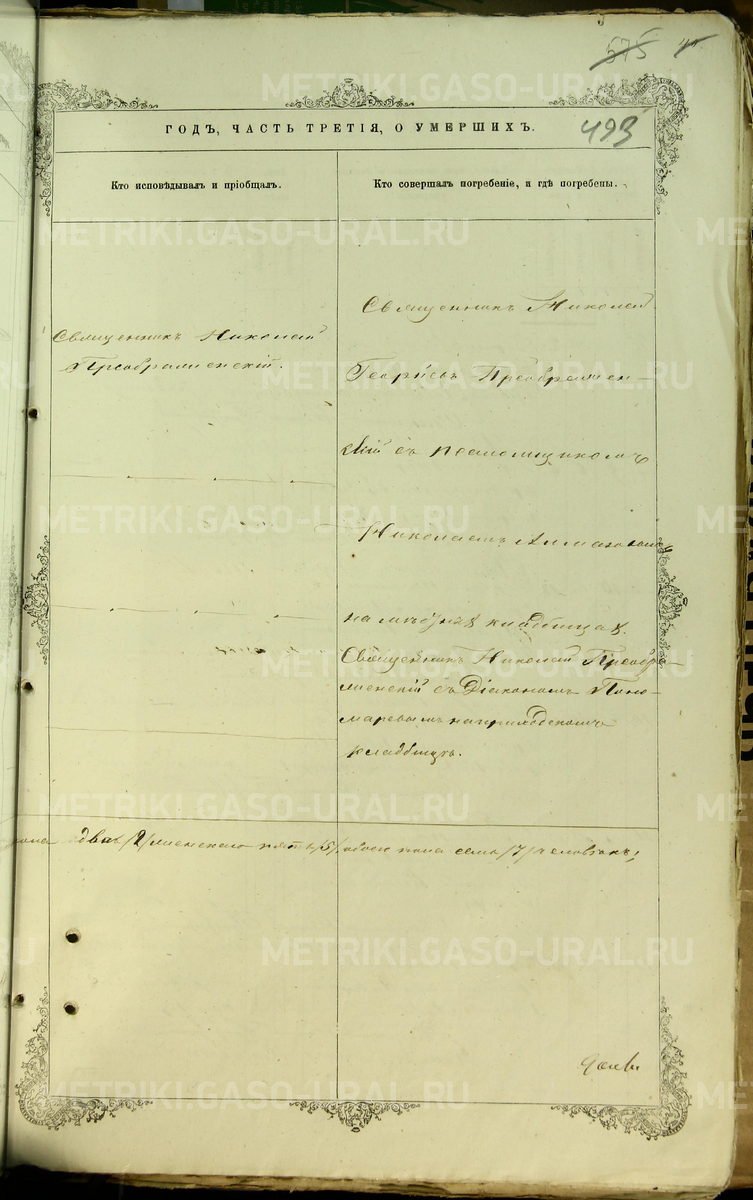 575
493
ГОДЪ, ЧАСТЬ ТРЕТІЯ, О УМЕРШИХЪ.
Кто исповѣдывалъ и пріобщалъ.
Кто совершалъ погребеніе, и гдѣ погребены.
Священникъ Николай
Преображенскій.
Священникъ Николай
Георгіевъ Преображен-
скій съ псаломщикомъ
Николаемъ
на мѣстномъ кладбищѣ.
Священникъ Николай Преобра-
женскій съ Діакономъ Поно-
маревымъ на приходскомъ
кладбищѣ.
пола два /2/ женскаго пять /5/ обоего пола семь /7/ человѣкъ;
METRIKI.GASO-URAL.RU